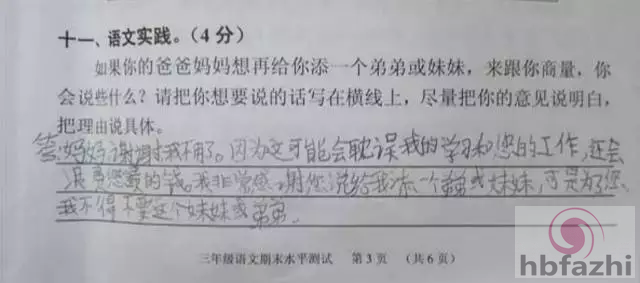 十一、语文实践。(4分)
如果你的爸爸妈妈想再给你添一个弟弟或妹妹，来跟你商量，你
会说些什么？请把你想要说的话写在横线上，尽量把你的意见说明白，
把理由说具体。
答:妈妈谢谢我不用了。因为这可能会耽误我的学习和您的工作，还会
浪费您的钱。我非常感谢您说给我添一个弟弟或妹妹，可是为了您，
我不得不要这个妹妹或弟弟.
三年级语文期末水平测试 第3页 (共6页)
hbfazhi